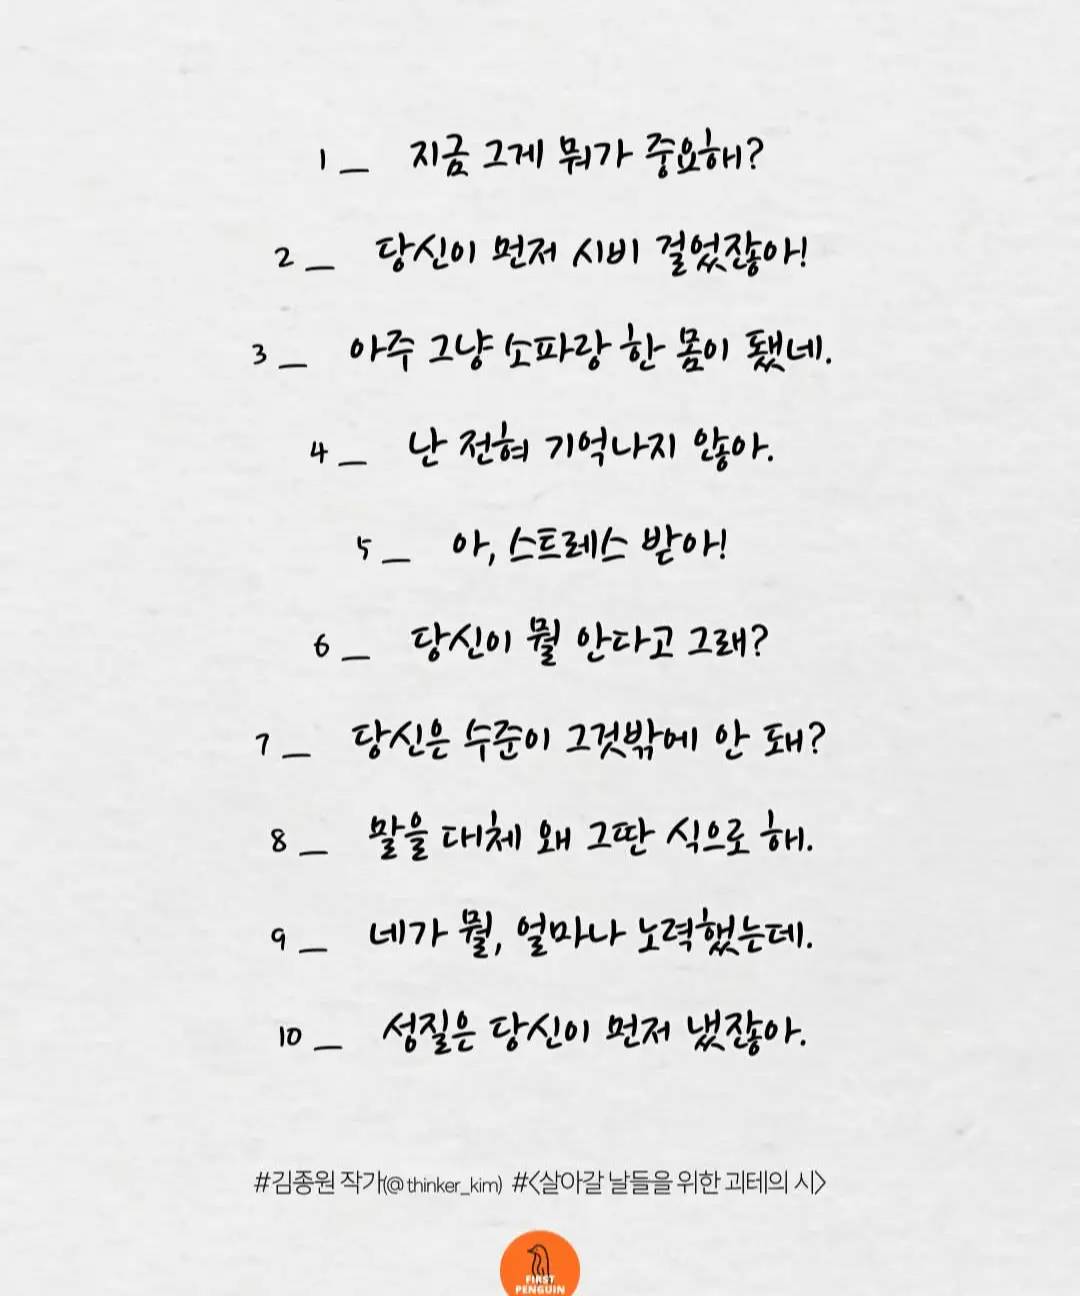 1 _ 지금 그게 뭐가 중요해?
2 _ 당신이 먼저 시비 걸었잖아!
3 _ 아주 그냥 소파랑 한 몸이 됐네.
4 _ 난 전혀 기억나지 않아.
5 _ 아, 스트레스 받아!
6 _ 당신이 뭘 안다고 그래?
7 _ 당신은 수준이 그것밖에 안 돼?
8 _ 말을 대체 왜 그딴 식으로 해.
9 _ 네가 뭘, 얼마나 노력했는데.
10 _ 성질은 당신이 먼저 냈잖아.
#김종원 작가(@thinker_kim) #<살아갈 날들을 위한 괴테의 시>
FIRST
PENGUIN